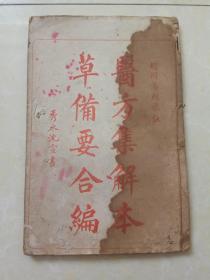 醫方集解本
草備要合編
秀水沈宝書